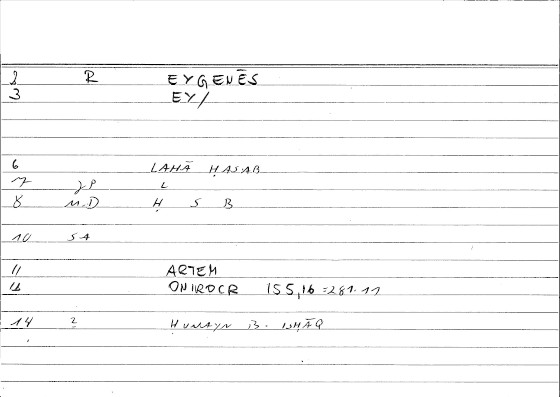 2 R EYGENĒS
3 EY/
6 LAHĀ ḤASAB
7 JP L
8 M.D Ḥ S B
10 SA
11 ARTEM
12 ONIROCR 155,16 = 281.11
14 2 ḤUNAYN B. ISḤĀQ